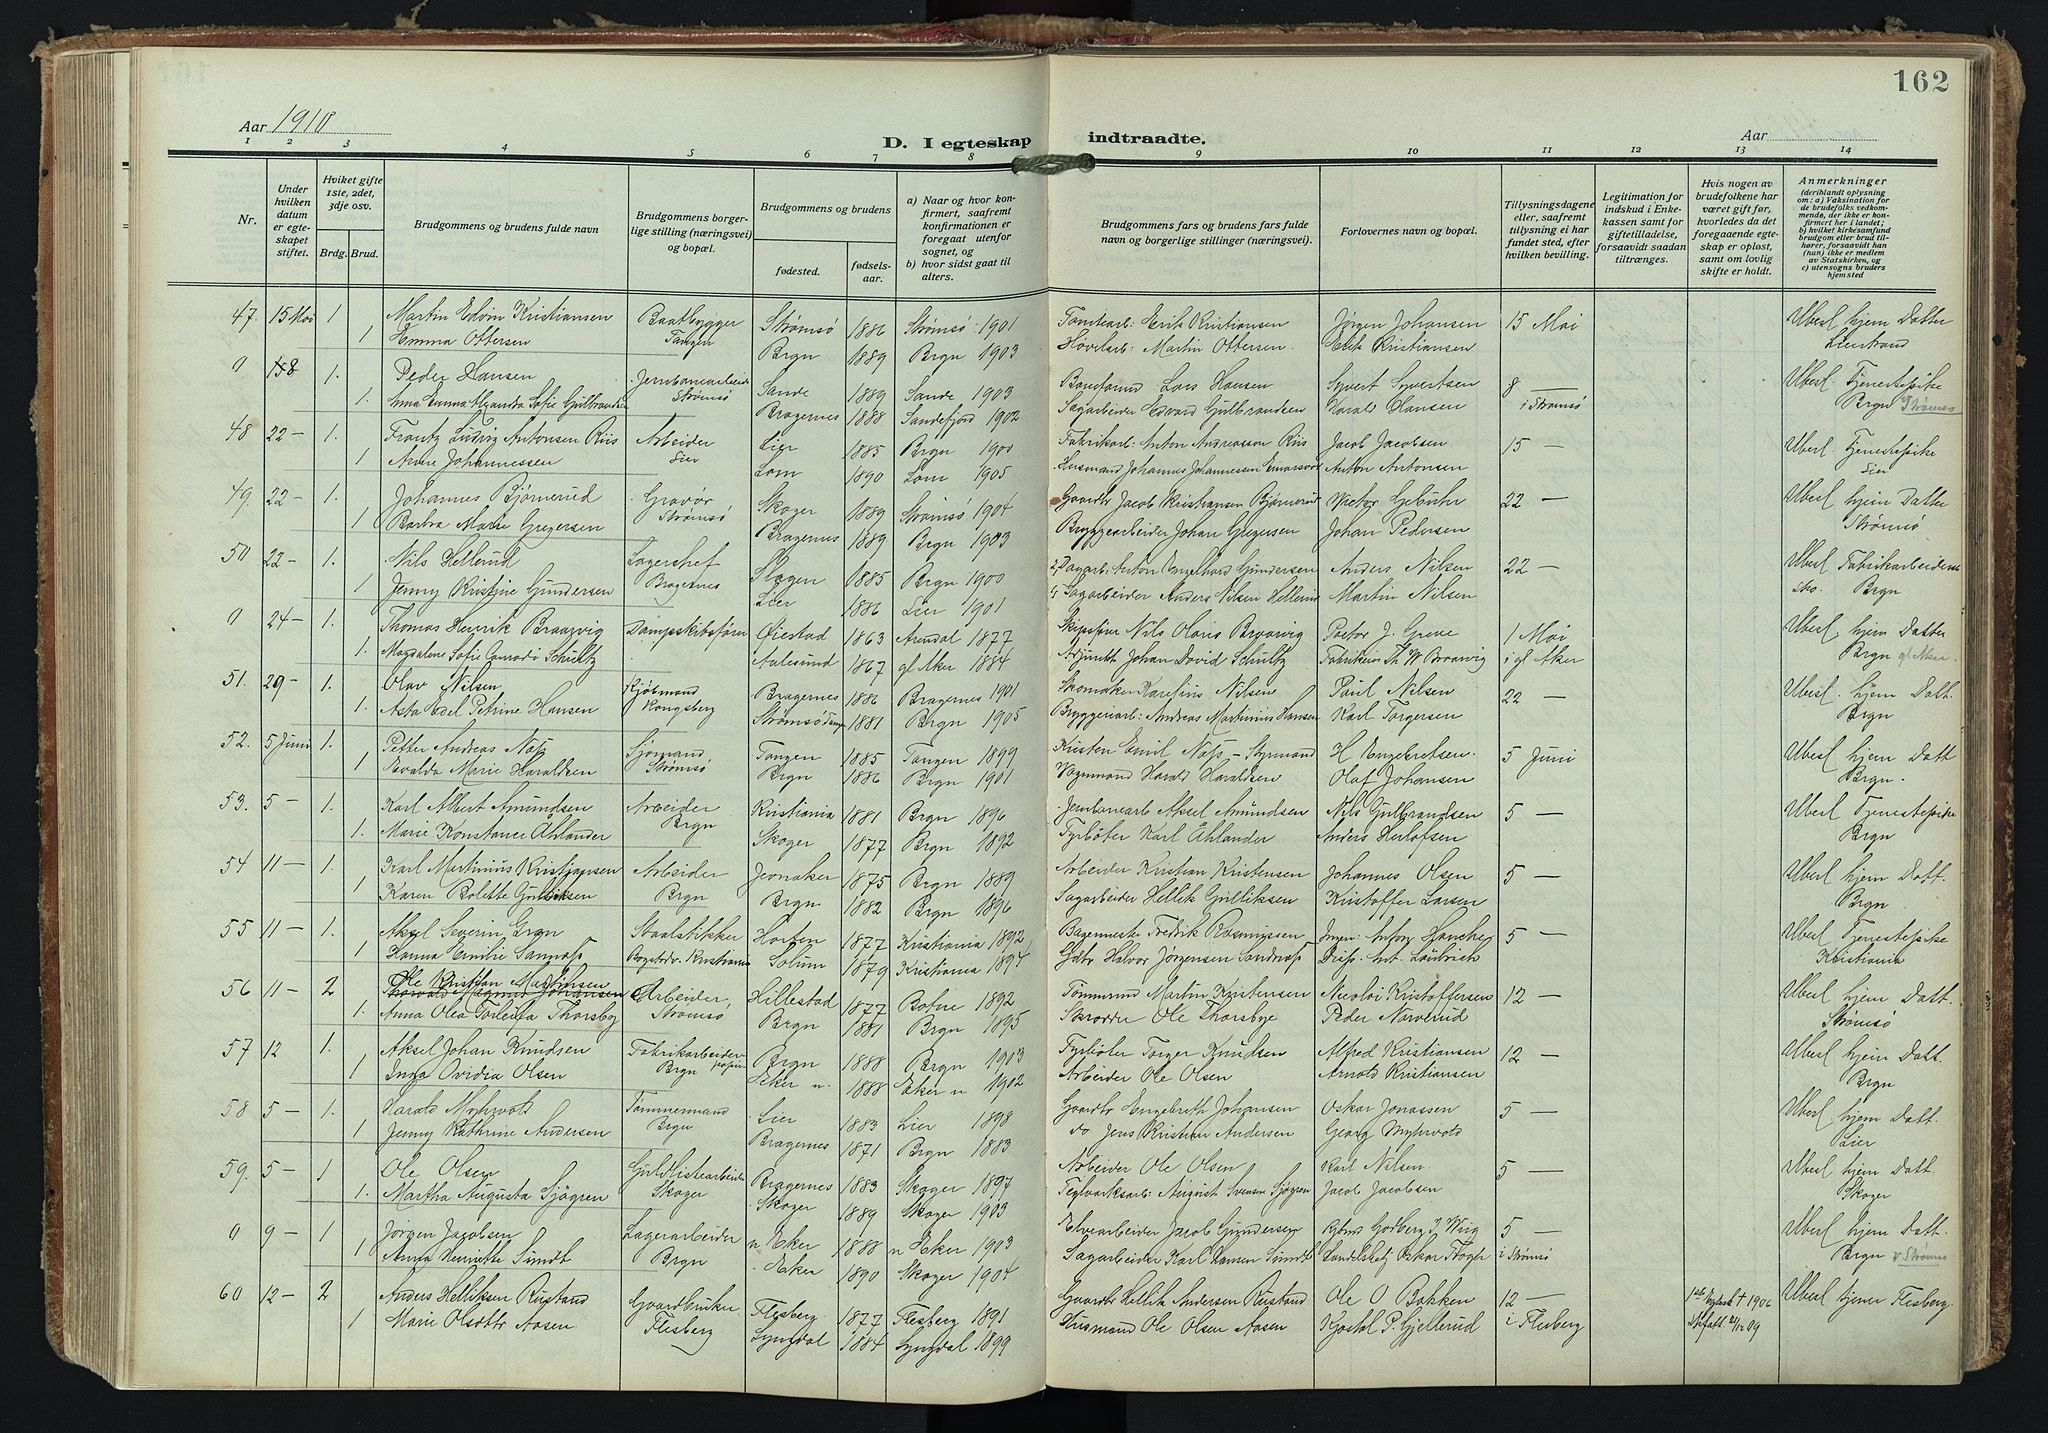 162
Aar 1910
Aar
D. I egteskap indtraadte.
1 2 3 4 5 6 7 8 9 10 11 12 13 14
Nr.
Under hvilken datum er egteskapet stiftet.
Hviket gifte 1ste, 2det, 3dje osv.
Brdg. Brud.
Brudgommens og brudens fulde navn
Brudgommens borgerlige stilling (næringsvei) og bopæl.
Brudgommens og brudens
fødested.
fødselsaar.
a) Naar og hvor konfirmert, saafremt konfirmationen er foregaat utenfor sognet, og
b) hvor sidst gaat til alters.
Brudgommens fars og brudens fars fulde navn og borgerlige stillinger (næringsvei).
Forlovernes navn og bopæl.
Tillysningsdagene eller, saafremt tillysning ei har fundet sted, efter hvilken bevilling.
Legitimation for indskud i Enkekassen samt for giftetilladelse, forsaavidt saadan tiltrænges.
Hvis nogen av brudefolkene har været gift før, hvorledes da det foregaaende egteskap er opløst, samt om lovlig skifte er holdt.
Anmerkninger
(deriblandt oplysning om: a) Vaksination for de brudefolks vedkommende, der ikke er konfirmert her i landet; b) hvilket kirkesamfund brudgom eller brud tilhører, forsaavidt han (hun) ikke er medlem av Statskirken, og c) utensogns bruders hjemsted
47. 15 Mai 1 Martin Edvin Kristiansen Baatbygger Strømsø 1886 Strømsø 1901 Tomtearb: Erik Kristiansen Jørgen Johansen 15 Mai Ubesl hjem Datter
1 Emma Ottersen Tangen Brgn 1889 Brgn 1903 Høvelarb: Martin Ottersen. Erik Kristiansen Lierstrand
0 18 1. Peder Hansen Jernbanearbeider Sande 1889 Sande 1903 Lars Hansen Syvert Syvertsen 8 — Ubesl Tjenestepike
1. Anna Emma Alexandra Sofie Gulbrandsen Strømsø Bragernes 1888 Sandefjord 1902 Sagarbeider Edvard Gulbrandsen Harald Hansen i Strømsø Brgn Strømsø
48 22 — 1. Frantz Ludvig Antonsen Riis Arbeider Lier 1885 Brgn 1900 Fabrikarb: Anton Andreassen Riis Jacob Jacobsen 15 — Ubesl. Tjenestepike
1 Anne Johannessen Lier Lom 1890 Lom 1905 Husmand Johannes Johannessen Anton Antonsen Lier
49. 22 — 1. Johannes Bjørnerud Gravør Skoger 1889 Strømsø 1904 Gaardbr Jacob Kristiansen Bjørnerud Victor Gebuhr 22 — Ubesl hjem Datter
1 Barbra Marie Gregersen Strømsø Bragernes 1889 Brgn 1903 Bryggearbeider Johan Gregersen Johan Pedersen Strømsø
50 22 — 1. Nils Hellerud Lagershef Slagen 1885 Brgn 1900 2, Dagarb: Anton Engelhard Gundersen Anders Nilsen 22 — Ubesl Fabrikarbeiderske
1 Jenny Kristine Gundersen Bragernes Lier 1886 Lier 1901 1, Sagarbeider Anders Nilsen Hellerud Martin Nilsen Brgn
0 24 — 1. Thomas Henrik Braarvig Dampskibsfører Øiestad 1863 Arendal 1877 Skipsfører Nils Olaus Braarvig Pastor J. Greve 1 Mai Ubesl. hjem Datter
1. Magdalene Sofie Conradi Schultz Aalesund 1867 gl Aker 1884 Adjunkt Johan David Schultz Fabrikeier Th W Braarvig i gl Aker Brgn gl Aker.
51. 29 — 1. Olav Nilsen Kjøbmand Bragernes 1886 Bragernes 1901 Skomaker Karelius Nilsen Paul Nilsen 22 — Ubesl. hjem Datt.
1. Asta Edel Petrine Hansen Kongsberg Strømsø 1881 Brgn 1905 Bryggeriarb: Andreas Martinius Hansen Karl Torgersen Brgn
52. 5 Juni 1. Petter Andreas Næss Sjømand Tangen 1885 Tangen 1899 Kristen Emil Næss — Styrmand H Engebretsen. 5 Juni Ubesl hjem Datt
1 Evalda Marie Haraldsen Strømsø Brgn 1886 Brgn 1901 Vognmand Harald Haraldsen Olaf Johansen Brgn.
53. 5 — 1. Karl Albert Amundsen Arbeider Kristiania 1881 Brgn 1896 Jernbanearb Aksel Amundsen Nils Gulbrandsen 5 — Ubesl Tjenestepike
1. Marie Konstance Åhlander Brgn Skoger 1877 Brgn 1892 Fyrbøter Karl Åhlander Anders Herlofsen Brgn
54 11 — 1 Karl Martinius Kristiansen Arbeider Jevnaker 1875 Brgn 1889 Arbeider Kristian Kristensen Johannes Olsen 5 — Ubesl hjem Datt.
1 Karen Bolette Gulliksen Brgn Brgn 1882 Brgn 1896 Sagarbeider Hellik Gulliksen Kristoffer Larsen Brgn
55 11 — 1. Aksel Severin Ergn Staalstikker Horten 1877 Kristiania 1892 Bagermester Fredrik Rasmussen Ingen. Anton Hanche 5 — Ubesl Tjenestepike
1 Hanna Emilie Sannæss Kristiania Solum 1879 Kristiania 1894 Gdbr Halvor Jørgensen Kristiania
56 11 — 2 Ole Kristian Martinsen Arbeider, Hillestad 1877 Botne 1892 Tømmermand Martin Kristensen Nicolai Kristoffersen 12 — Ubesl hjem Datt.
1. Anna Olea Thorsby Strømsø Brgn 1881 Brgn 1895 Skrædder Ole Thorsbye Peder Narverud Strømsø
57 12 1. Aksel Johan Knudsen Fabrikarbeider Brgn 1888 Brgn 1903 Fyrbøter Torger Knudsen Alfred Kristiansen 12 — Ubesl hjem Datt.
1 Inga Ovidia Olsen Brgn Eker n. 1888 Eker n 1902 Arbeider Ole Olsen Arnold Kristiansen Brgn
58 5 — 1. Harald Myhrvold Tømmermand Lier 1883 Lier 1898 Gaardbr Engebreth Johansen Oskar Jonassen 5 — Ubesl hjem Datt.
1 Jenny Kathrine Andersen Brgn Bragernes 1871 Brgn 1883 do Jens Kristian Andersen Georg Myhrvold Lier
59. 5 — 1 Ole Olsen Guldlistearbeider Bragernes 1883 Skoger 1897 Arbeider Ole Olsen Karl Nilsen. 5 — Ubesl hjem Datt.
1. Martha Augusta Sjøgren Skoger Skoger 1889 Skoger 1903 Teglverksarb: August Svensen Sjögren Jacob Jacobsen Skoger
0 9 — 1 Jørgen Jacobsen Lagerarbeider n Eker 1888 n Eker 1903 Elvearbeider Jacob Gundersen 5 — Ubesl hjem Datt
1 Anna Henriette Sundt Brgn Eker 1890 Skoger 1904 Sagarbeider Karl Hansen Sundt i Strømsø Brgn v Strømsø
60 12 — 2 Anders Helliksen Rustand Gaardbruker Flesberg 1877 Flesberg 1891 Gaardbr Hellik Andersen Rustand Ole O Bakken 12 — 1ste † 1906 Ubesl tjener Flesberg
1 Marie Olsdtr Aasen Flesberg Lyngdal 1884 Lyngdal 1899 Husmand Ole Olsen Aasen Gjellerud i Flesberg 09